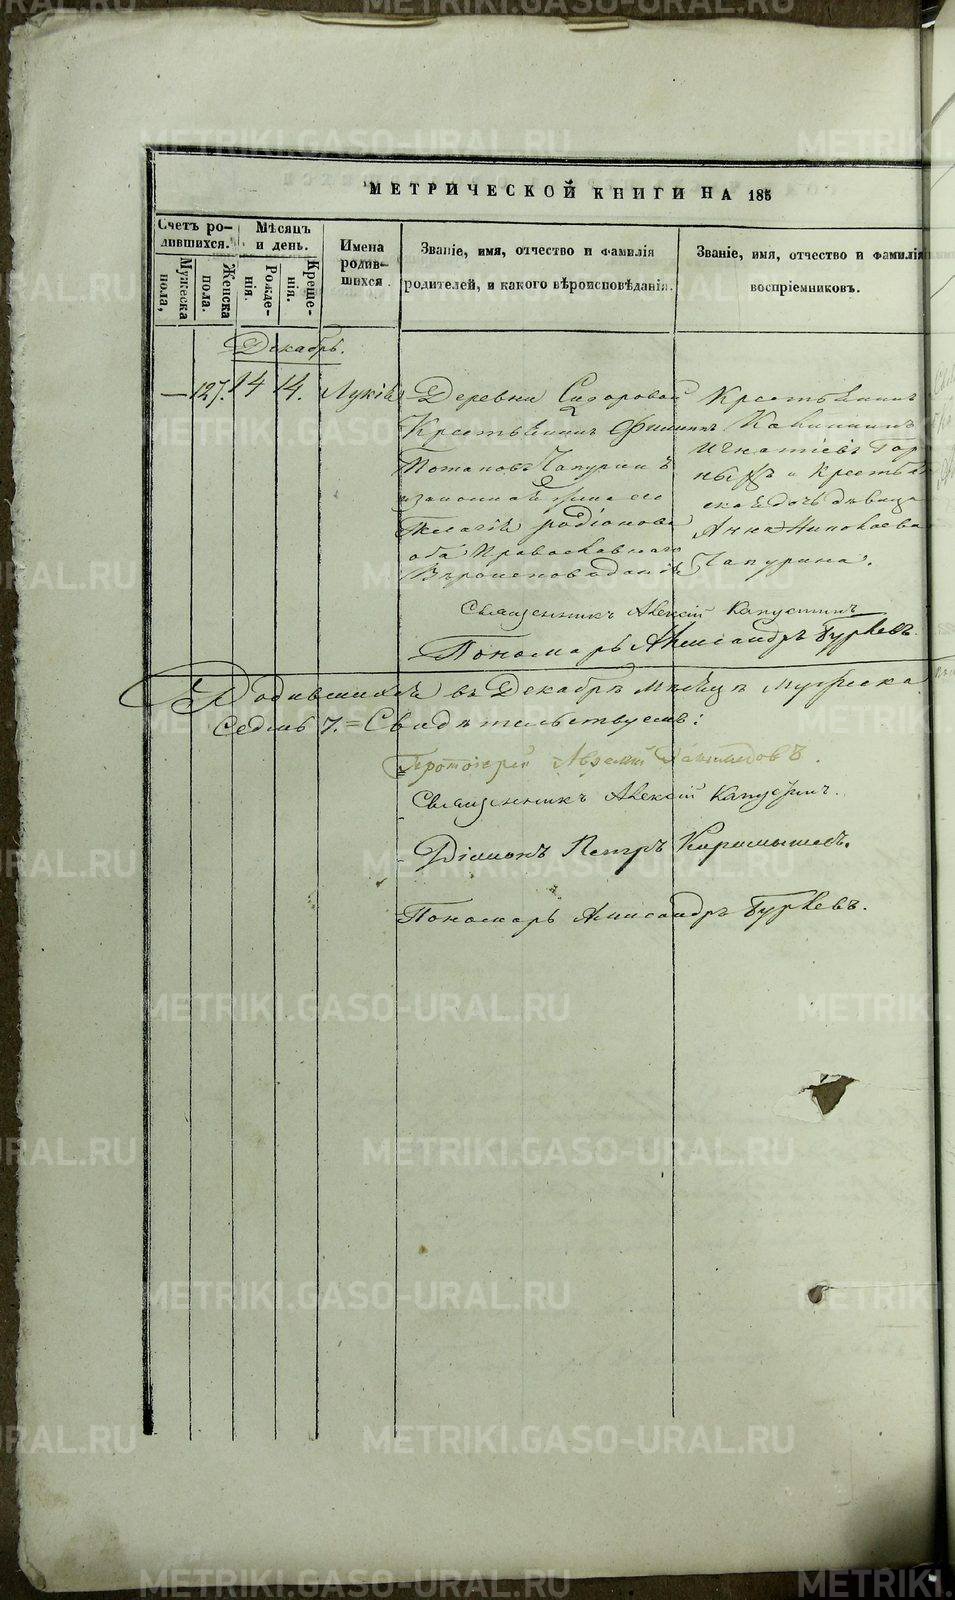 МЕТРИЧЕСКОЙ КНИГИ НА 185
Счетъ ро-
дившихся.
Мужеска
пола,
Женска
пола.
Мѣсяцъ
и день.
Рожде-
нія.
Креще-
нія.
Имена
родив-
шихся.
Званіе, имя, отчество и фамилія
родителей, и какого вѣроисповѣданія.
Званіе, имя, отчество и фамилія
воспріемниковъ.
Декабрь.
— 127. 14 14. Лукія
Деревни Сидоровой
Крестьянинъ Филиппъ
Потаповъ Чапуринъ
и законная жена его
Пелагія Родіонова
оба Православнаго
Вѣроисповѣданія
Крестьянинъ
Игнатіевъ Гор
ныхъ и Крестьян
ская дочь дѣвица
Анна Николаева
Чапурина.
Священникъ Алексій Капустинъ
Пономарь Александръ Бурлевъ.
Родившихся въ Декабрѣ мѣсяцѣ мужеска
седмь 7. = Свидѣтельствуемъ:
Протоіерей
Священникъ Алексій Капустинъ.
Діаконъ Петръ Карамышевъ.
Пономарь Александръ Бурлевъ.
METRIKI.GASO-URAL.RU